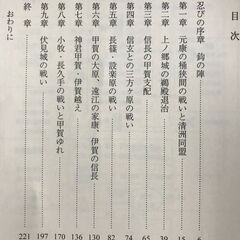 目次
忍びの序章 鈎の陣 6
第一章 元康の桶狭間の戦いと清洲同盟 15
第二章 上ノ郷城の鵜殿退治 39
第三章 信長の甲賀支配 65
第四章 信玄との三方ヶ原の戦い 74
第五章 長篠・設楽原の戦い 82
第六章 甲賀の大原、遠江の家康、伊賀の信長 130
第七章 神君甲賀・伊賀越え 136
第八章 小牧・長久手の戦いと甲賀ゆれ 170
第九章 伏見城の戦い 197
終章 221
おわりに